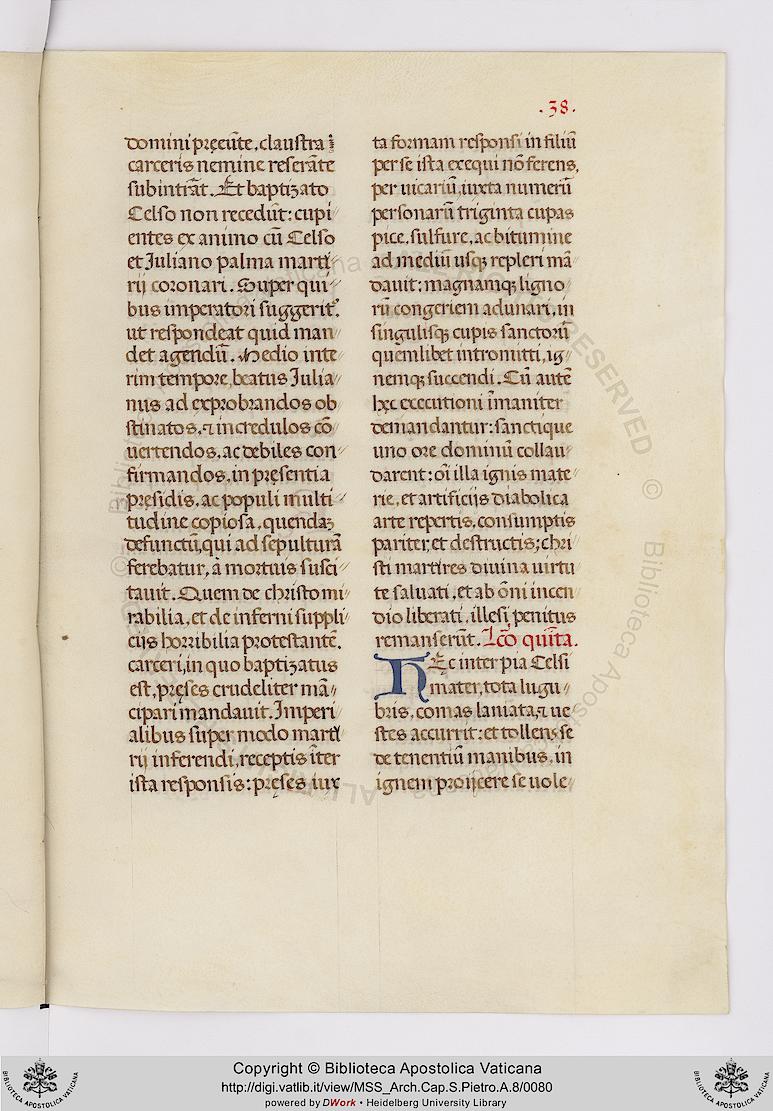 .38.
domini pręeūte, claustra ⁊
carceris nemine reserāte
subintrāt. Et baptizato
Celso non recedūt: cupi
entes ex animo cū Celso
et Juliano palma marti
rij coronari. Super qui
bus imperatori suggerit᷒.
ut respondeat quid man
det agendū. Medio inte
rim tempore, beatus Julia
nus ad exprobrandos ob
stinatos, ⁊ incredulos cō
uertendos, ac debiles con
firmandos, in presentia
pręsidis, ac populi multi
tudine copiosa, quendaꝫ
defunctū, qui ad sepulturā
ferebatur, ā mortuis susci
tauit. Quem de christo mi
rabilia, et de inferni suppli
cijs horribilia protestantē,
carceri, in quo baptizatus
est, pręses crudeliter mā
cipari mandauit. Imperi
alibus super modo marti
rij inferendi, receptis īter
ista responsis: pręses iux
ta formam responsi in filiū
per se ista exequi nō ferens,
per uicariū, iuxta numerū
personarū triginta cupas
pice, sulfure, ac bitumine
ad mediū usqꝫ repleri mā
dauit; magnamqꝫ ligno
rū congeriem adunari, in
singulisqꝫ cupis sanctorū
quemlibet intromitti, ig
nemqꝫ succendi. Cū autē
hęc executioni īmaniter
demandantur: sanctique
uno ore dominū collau
darent: oī illa ignis mate
rie, et artificijs diabolica
arte repertis, consumptis
pariter, et destructis; chri
sti martires diuina uirtu
te saluati, et ab ōni incen
dio liberati, illesi penitus
remanserūt. Lcō quīta.
HĘc inter pia Celsi
mater, tota lugu
bris, comas laniata, ⁊ ue
stes accurrit: et tollens se
de tenentiū manibus, in
ignem proijcere se uole
Copyright © Biblioteca Apostolica Vaticana
http://digi.vatlib.it/view/MSS_Arch.Cap.S.Pietro.A.8/0080
powered by DWork • Heidelberg University Library
BIBLIOTECA APOSTOLICA VATICANA
BIBLIOTECA APOSTOLICA VATICANA